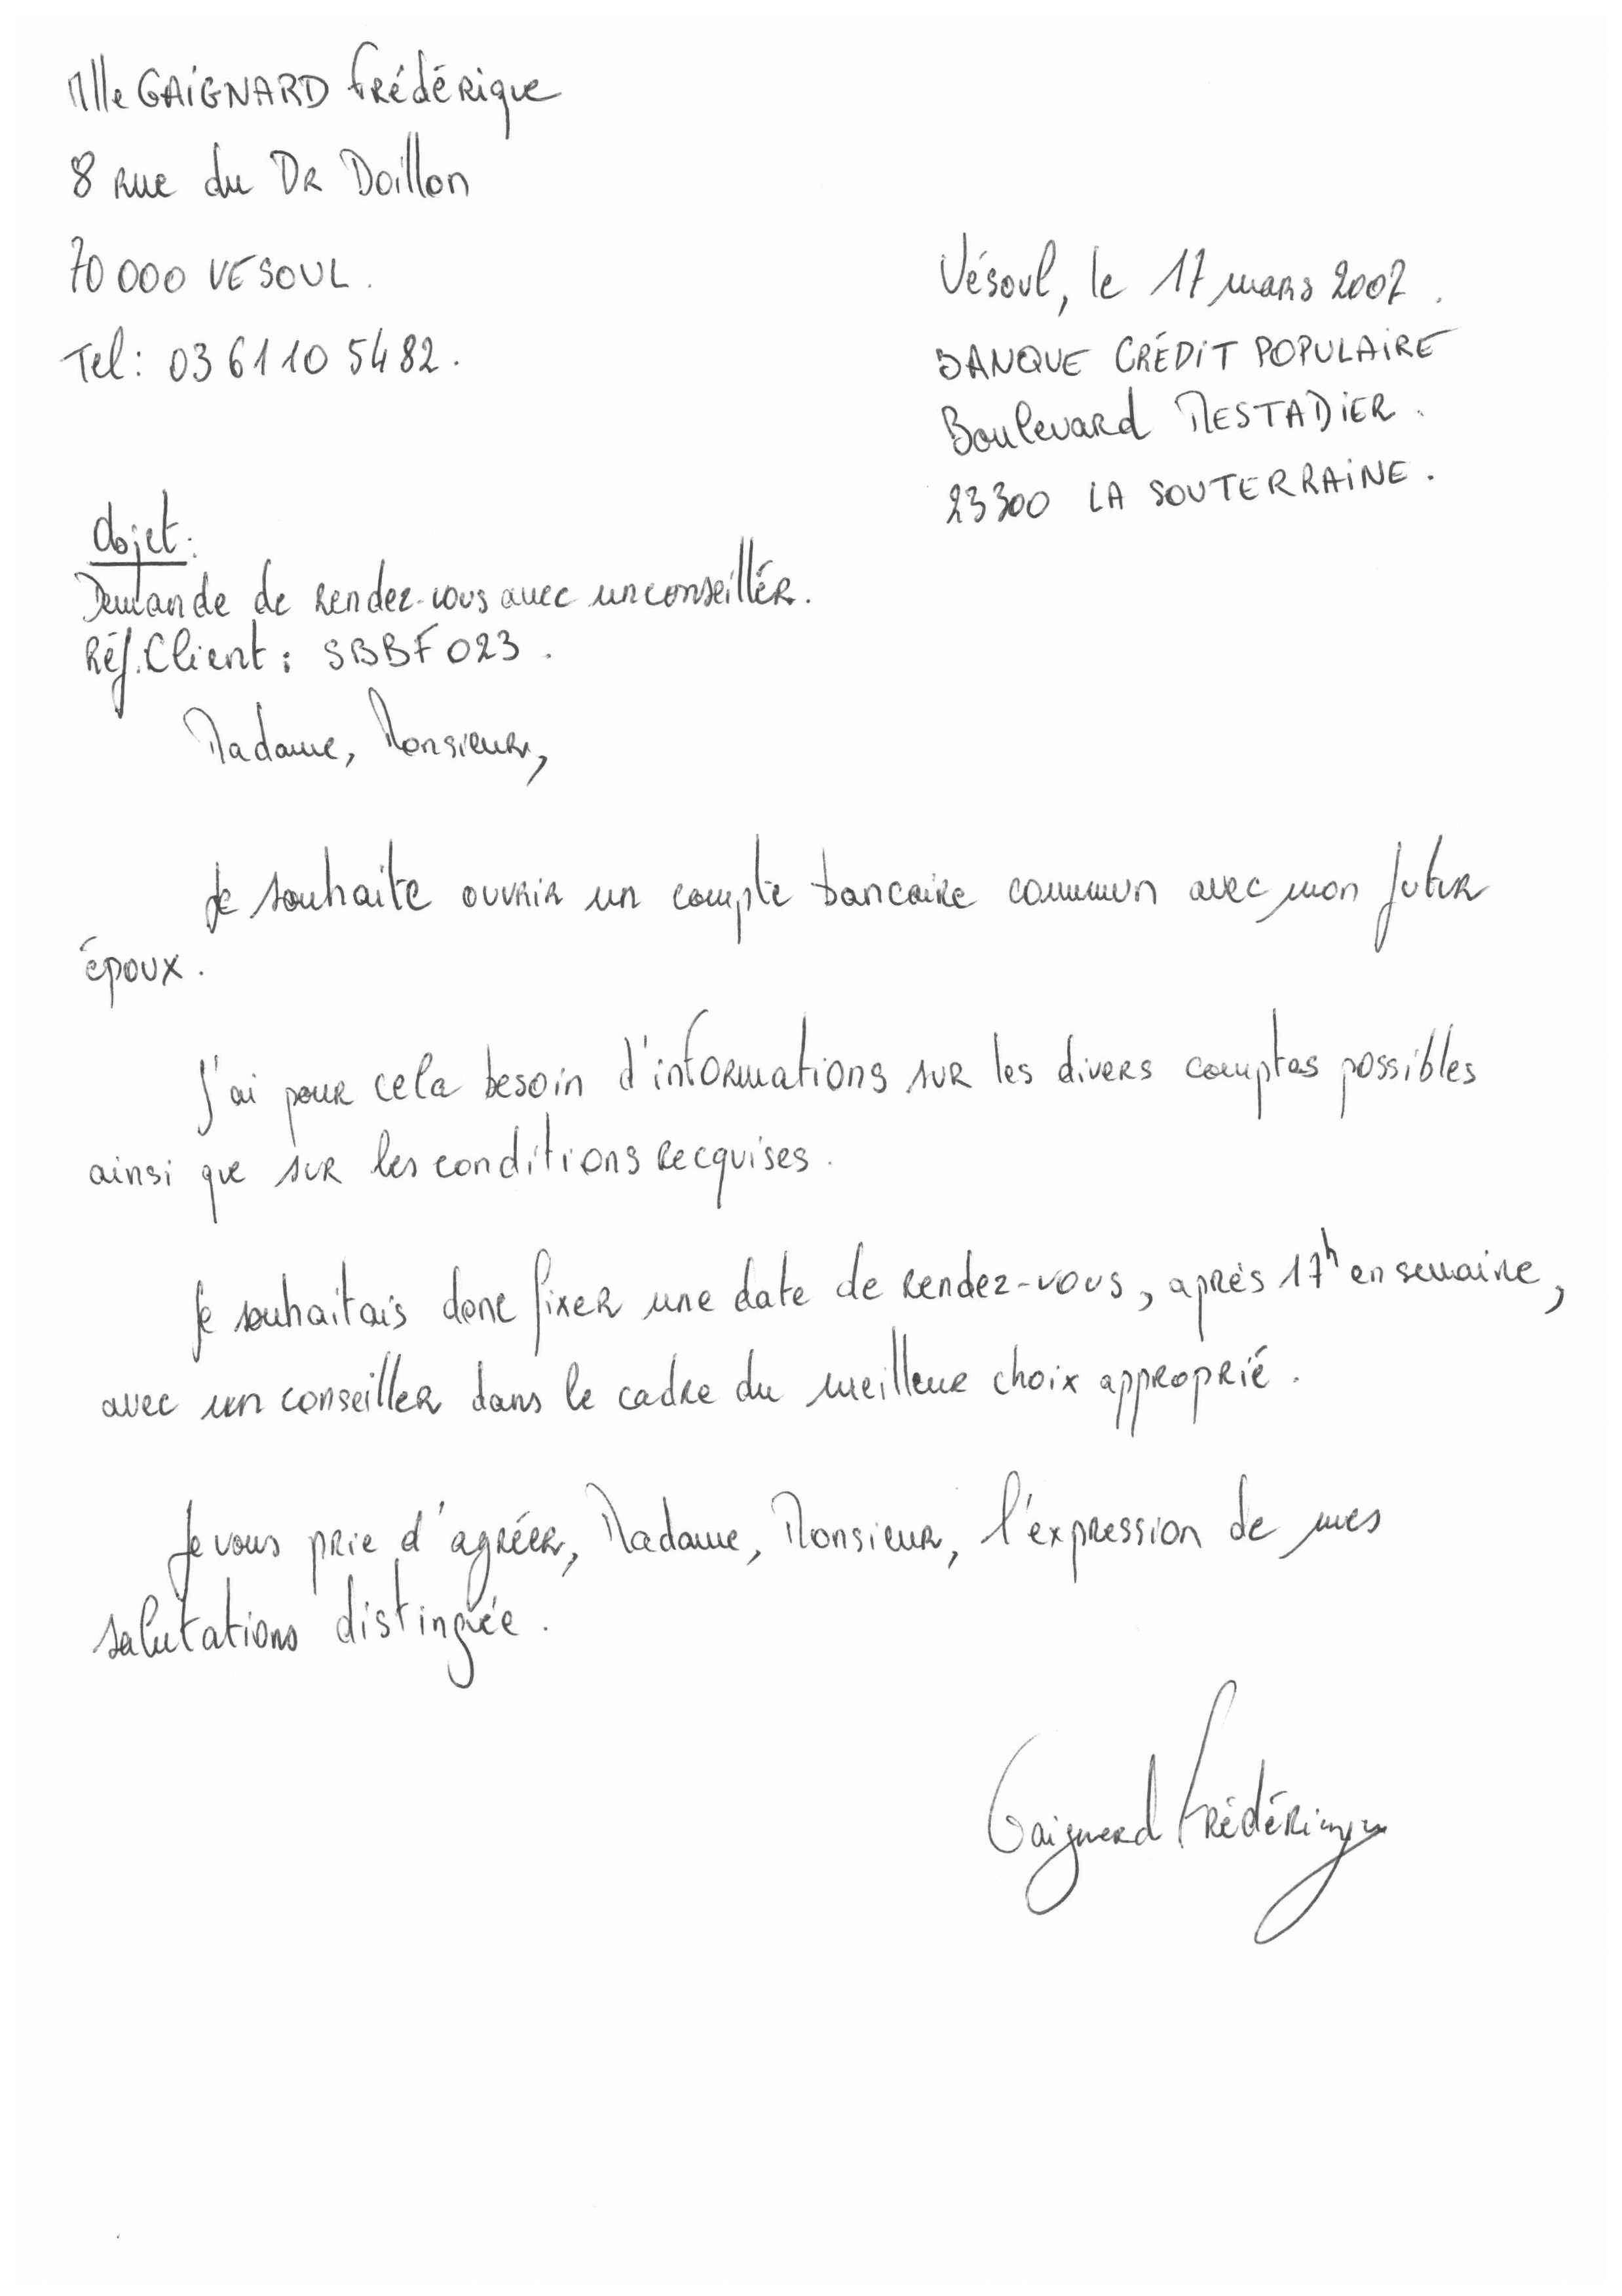 Mlle GAIGNARD Frédérique
8 rue du DR Doillon
70 000 VESOUL.
Tel: 03 61 10 54 82.
Vésoul, le 17 mars 2007.
BANQUE CRÉDIT POPULAIRE
Boulevard MESTADIER.
23300 LA SOUTERRAINE.
Objet:
Demande de rendez-vous avec un conseillér.
Réf. Client: SBBF023.
Madame, Monsieur,
Je souhaite ouvrir un compte bancaire commun avec mon futur
époux.
J'ai pour cela besoin d'informations sur les divers comptes possibles
ainsi que sur les conditions recquises.
Je souhaitais donc fixer une date de rendez-vous, après 17h en semaine,
avec un conseiller dans le cadre du meilleur choix approprié.
Je vous prie d'agréer, Madame, Monsieur, l'expression de mes
salutations distinguée.
Gaignard Frédérique